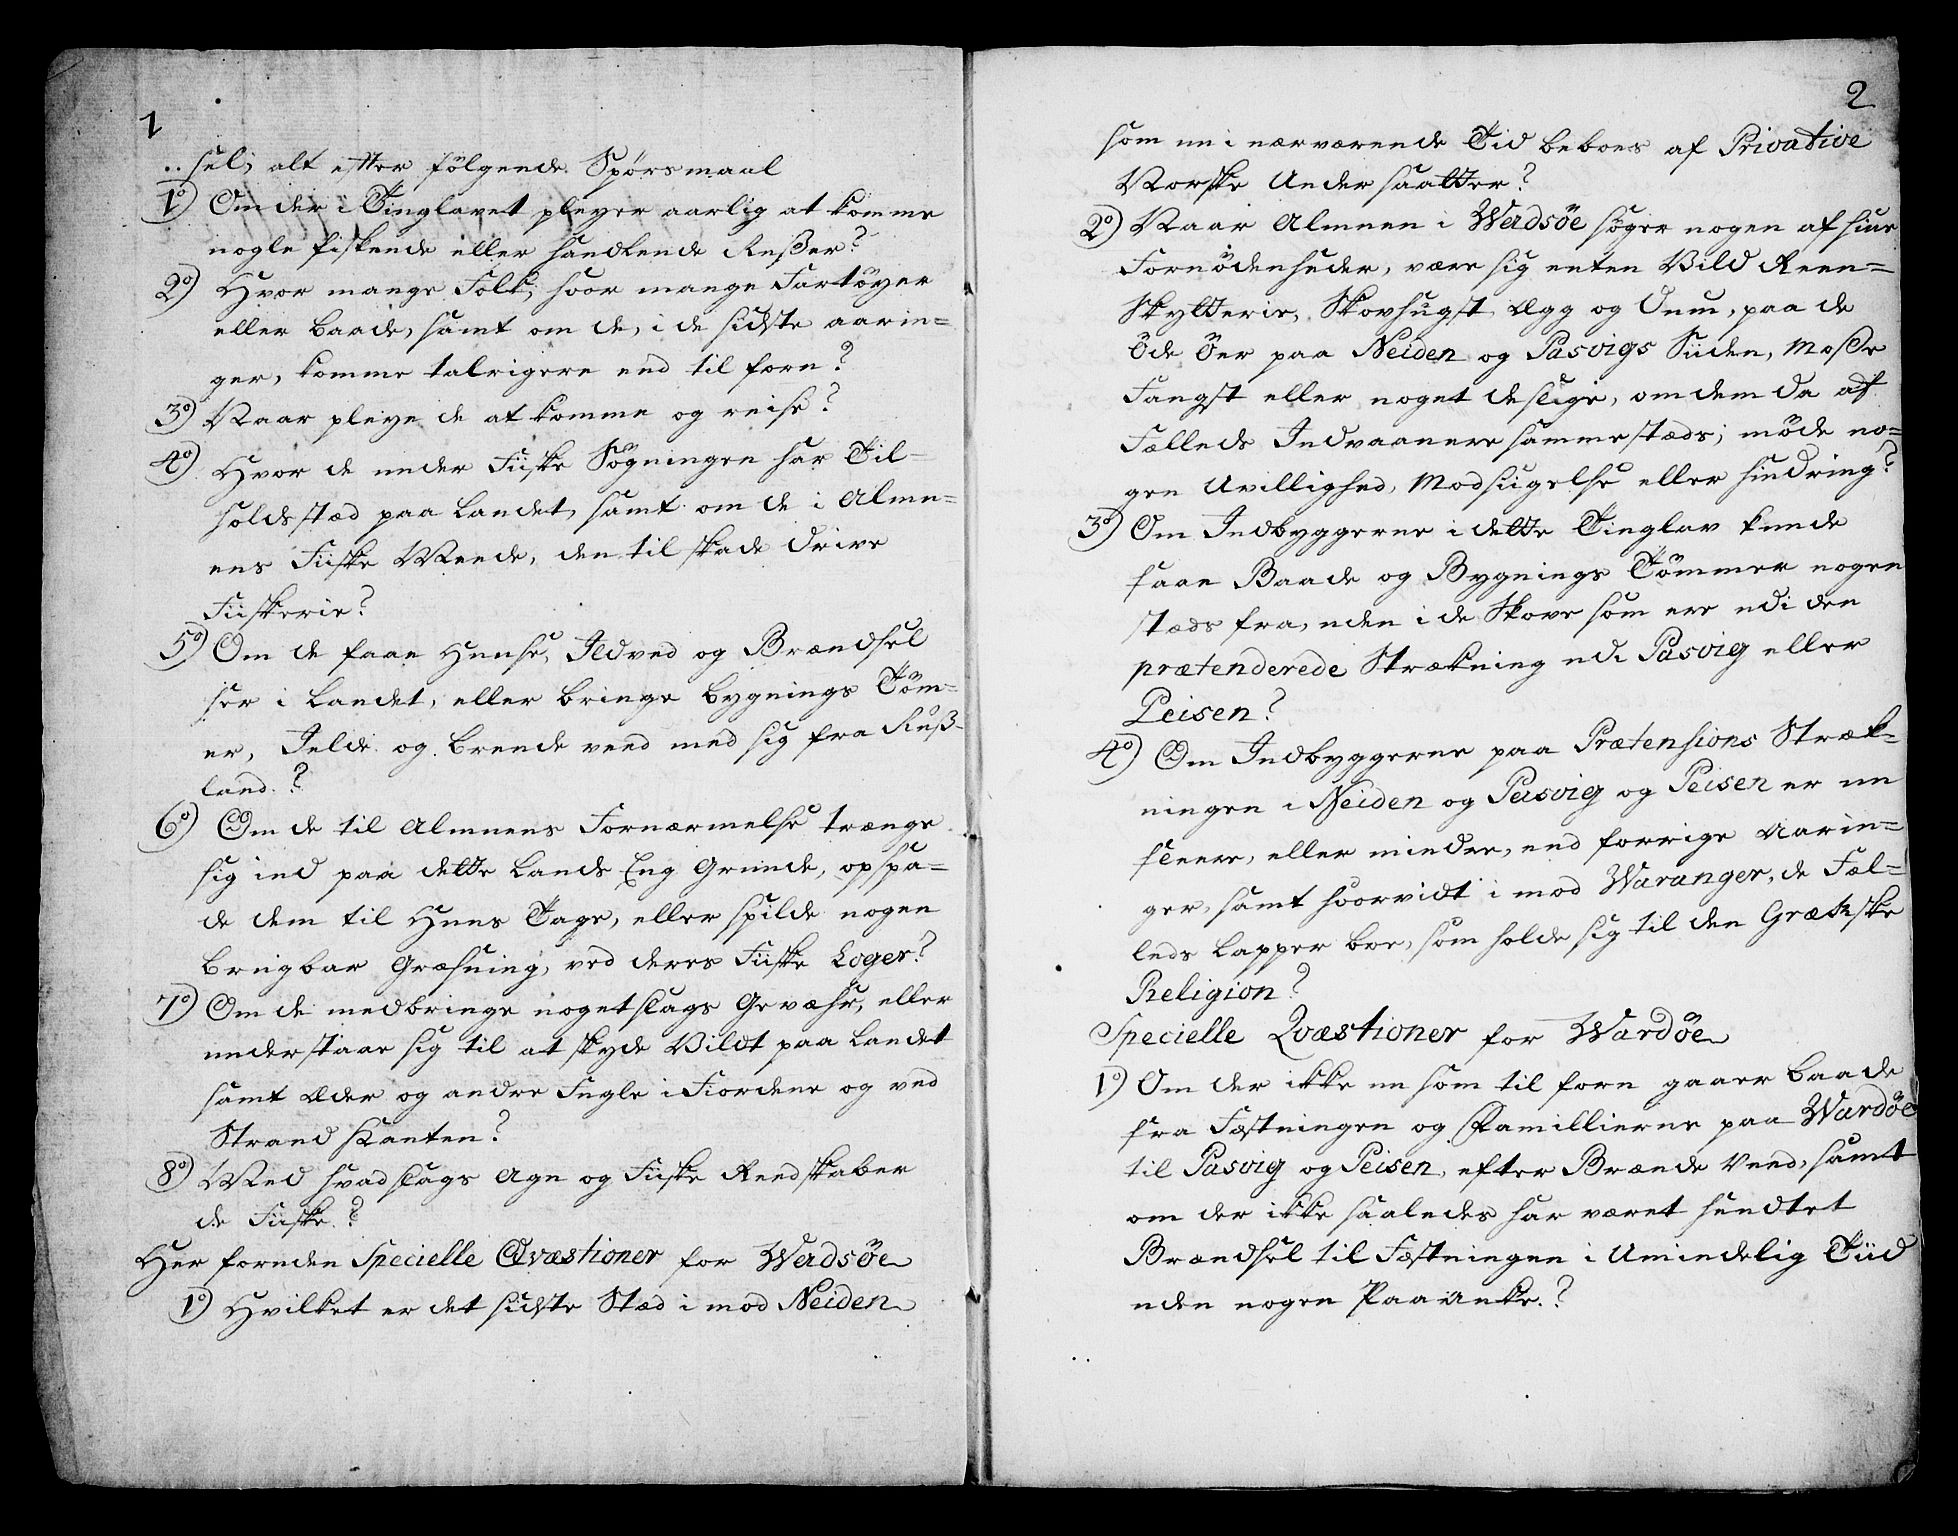 1
..sel, alt efter følgende Spørsmaal
1º) Om der i Tinglavet pleyer aarlig at komme
nogle fiskende eller handlende Rußer?
2º) Hvor mange Folk, hvor mange Fartöyer
eller baade, samt om de, i de sidste aarin=
ger, komme talrigere end til forn?
3º) Naar pleye de at komme og reise?
4º) Hvor de under Fiske Søgningen har Til=
holdstæd paa Landet, samt om de i Almu=
ens Fiske Meede, den til skade drive
Fiskerie?
5º) Om de faae Huuse, Ildved og Brændsel
her i Landet, eller bringe bygnings Töm=
er, Ielde og brende veed med sig fra Ruß-
land.?
6º) Om de til Almuens Fornærmelse trænge
sig ind paa dette Lands Eng Grunde, opspa=
de dem til Huus Tage, eller spilde nogen
brugbar Græsning, ved deres Fiske Loger?
7º) Om de medbringe nogetslags Gevæhr, eller
understaar sig til at skyde Vildt paa Landet
samt Æder og andre Fugle i Fiordene og ved
Strand Kanten?
8º) Med hvadslags Agn og Fiske Reedskaber
de Fiske.?
Her foruden Specielle Qvæstioner for Wadsöe
1º) Hvilket er det sidste Stæd i mod Neiden
2
som nu i nærværende Tid beboes af Privative
Norske Undersaatter?
2º) Naar Almuen i Wadsöe søger nogen af sine
Fornødenheder, være sig enten Vild Reen=
Skytterie, Skovhugst Ægg og Duun, paa de
Öde Öer paa Neiden og Pasvigs Siiden, Moße
Fangst eller noget deslige, om dem da af
Fælleds Indvaanere sammestæds, møde no=
gen Uvillighed, Modsigelse eller hindring?
3º) Om Indbyggerne i dette Tinglav kunde
faae Baade og Bygnings Tömmer nogen
stæds fra, uden i de Skove som ere udi den
prætenderede Strækning udi Pasvig eller
Peisen?
4º) Om Indbyggerne paa Prætensions Stræk=
ningen i Neiden og Pasvig og Peisen er nu
fleere, eller mindre, end forrige Aarin=
ger, samt hvorvidt i mod Waranger, de Fæl=
leds Lapper boe, som holde sig til den Grætske
Religion?
Specielle Qvæstioner for Wardöe
1º) Om der ikke nu som til forn gaaer baade
fra Fæstningen og Famillierne paa Wardöe
til Pasvig og Peisen, efter Brænde Veed, samt
om der ikke saaledes har været hendtet
Brændsel til Fæstningen i Umindelig Tiid
uden nogen Paaanke.?